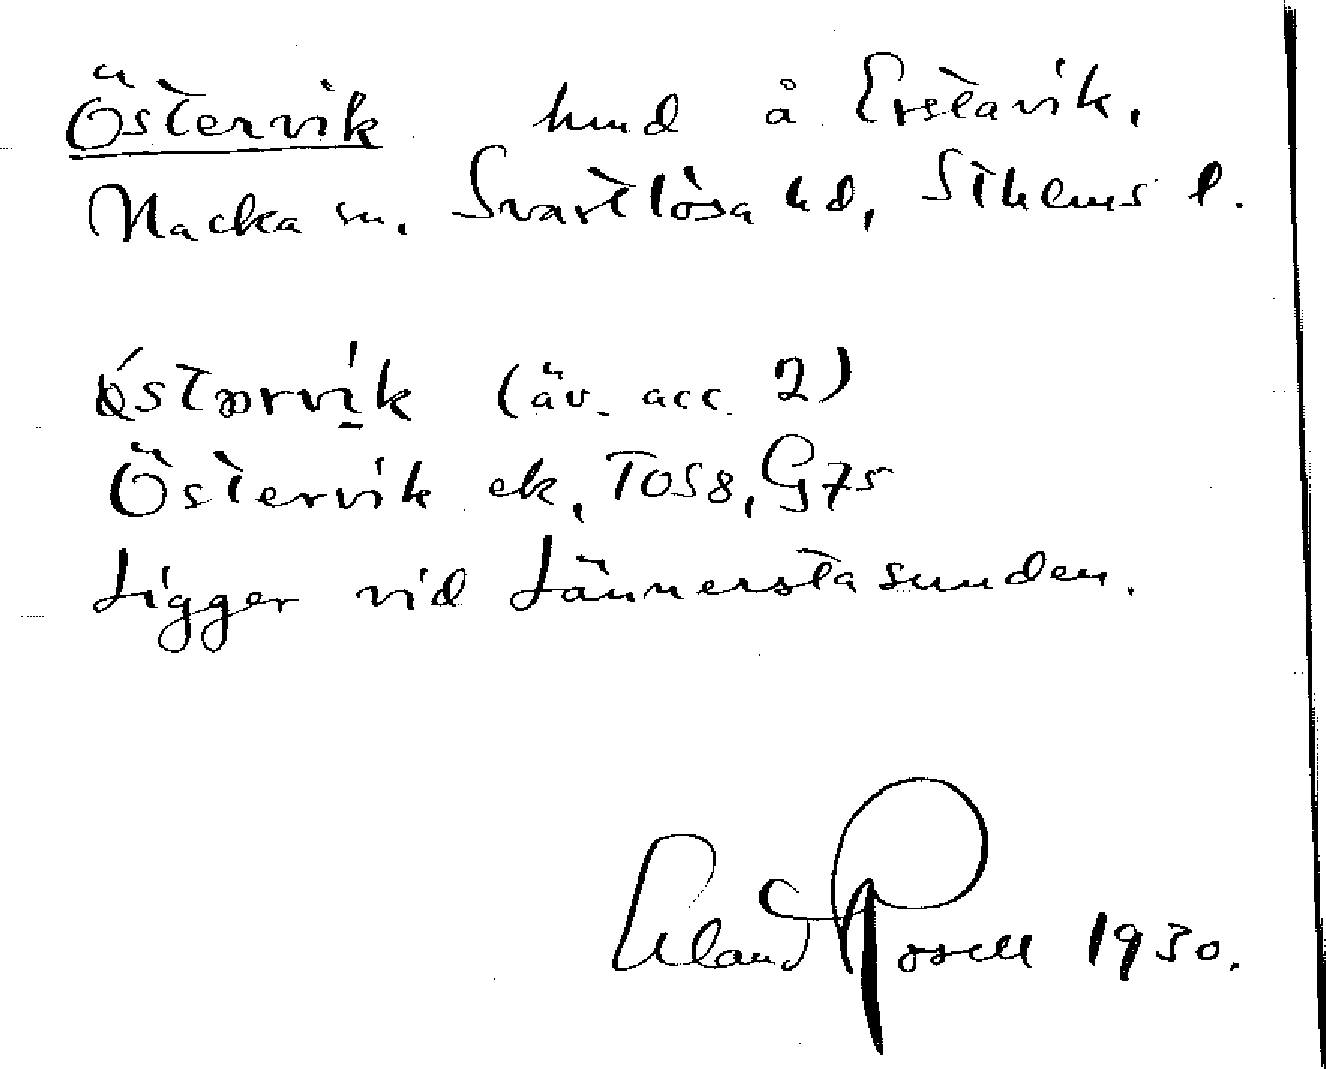 Östervik hmd å Erstavik,
Nacka sn. Svartlösa hd, Sthlms l.
östərvik (äv. acc. 2)
Östervik ek, T058, G75
Ligger vid Lännerstasunden.
Erland Rosell 1930.